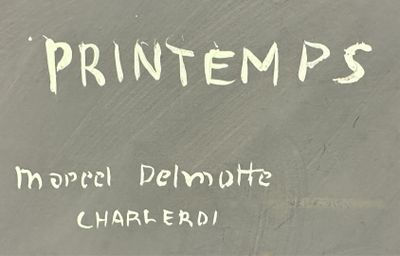 PRINTEMPS
Marcel Delmotte
CHARLERDI